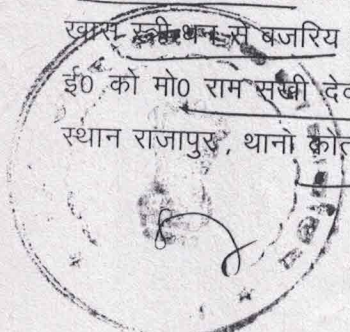 खास स्त्री धन से बजरिय
ई0 को मो0 राम सखी देव
स्थान राजापुर, थाना कोत